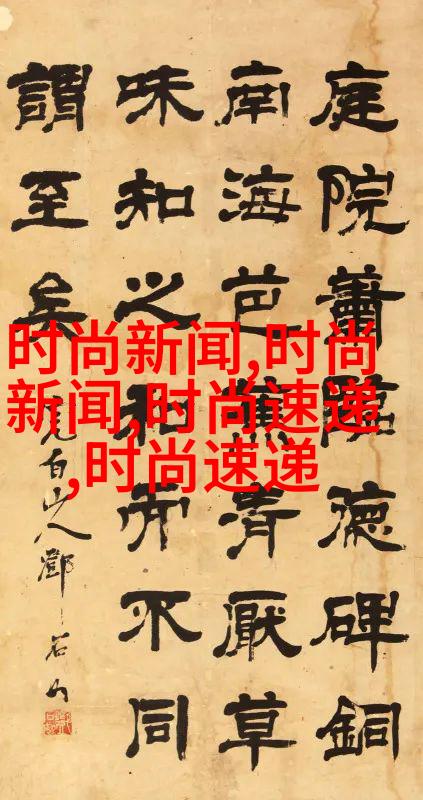 庭院蕭德碑銅
南海芭蕉青厭草
味知之和而不同
謂至矣
完白山人鄧石如
时尚新闻,时尚
新闻,时尚速递
,时尚速递